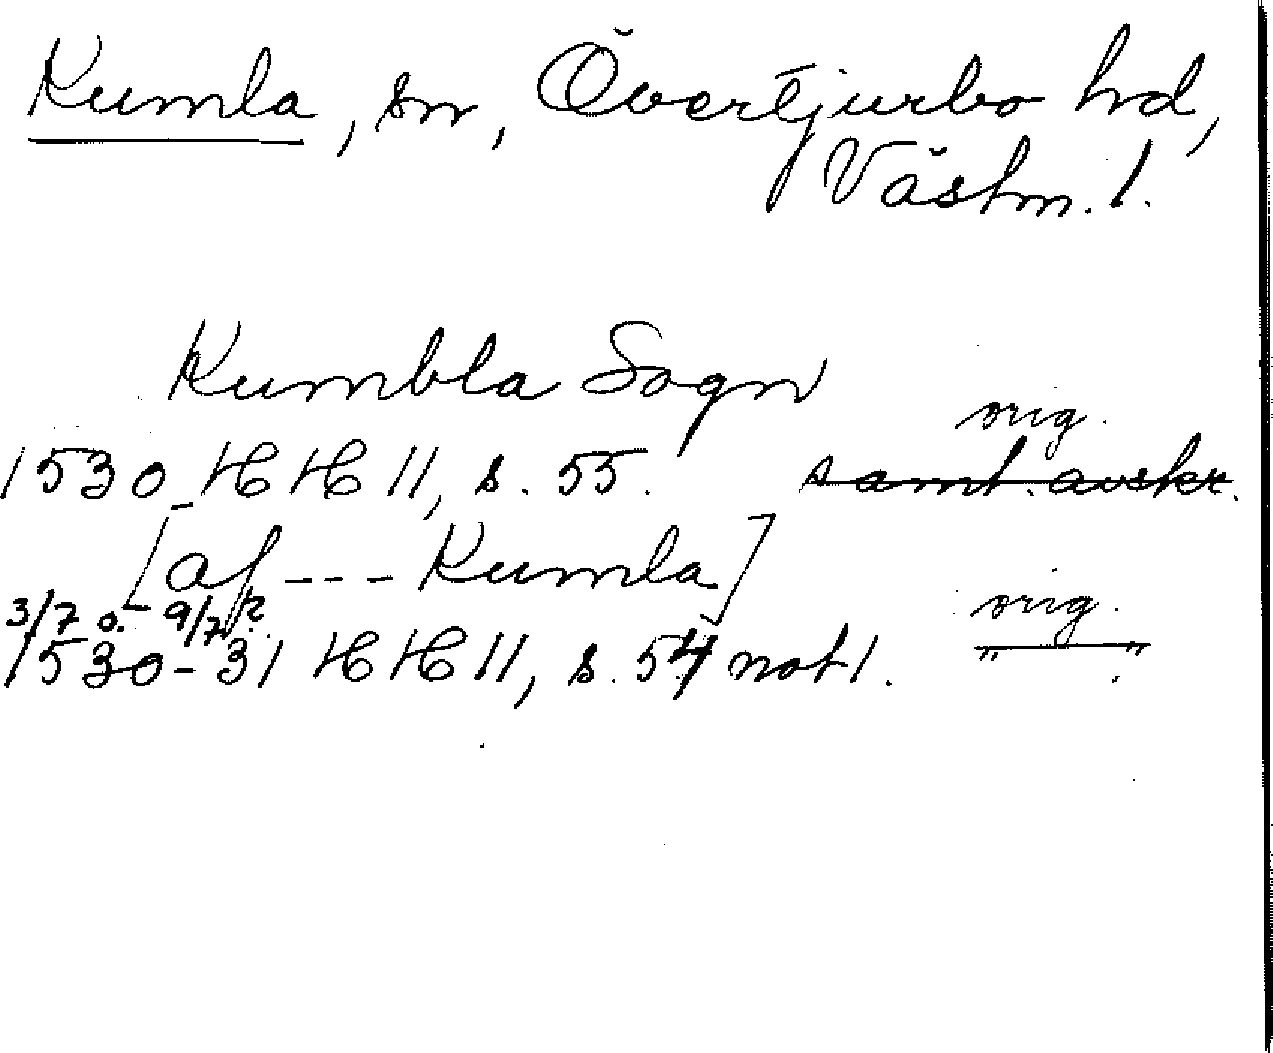 Kumla, sn, Övertjurbo hd,
Västm. l.
Kumbla Sogn
orig.
1530 HH 11, s. 55. samt. avskr.
[af --- Kumla]
3/7 o. 9/7 ? orig.
1530-31 HH 11, s. 54 not 1. " "